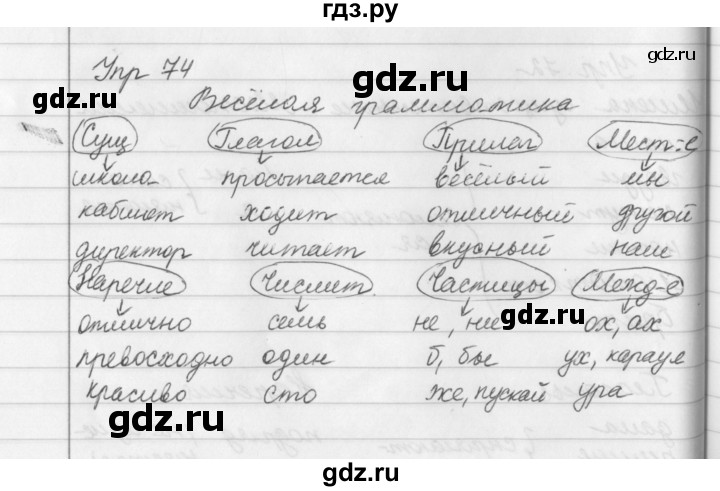 гдз.ру
Упр 74
gdz.ru
gdz.ru
Весёлая грамматика
Сущ Глагол Прилаг Мест-е
школа просыпается весёлый мы
кабинет ходит отличный другой
директор читает вкусный наш
Наречие Числит. Частицы Межд-е
отлично семь не, ни ох, ах
gdz.ru
превосходно один б, бы ух, караул
красиво сто же, пускай ура
gdz.ru
gdz.ru
gdz.ru